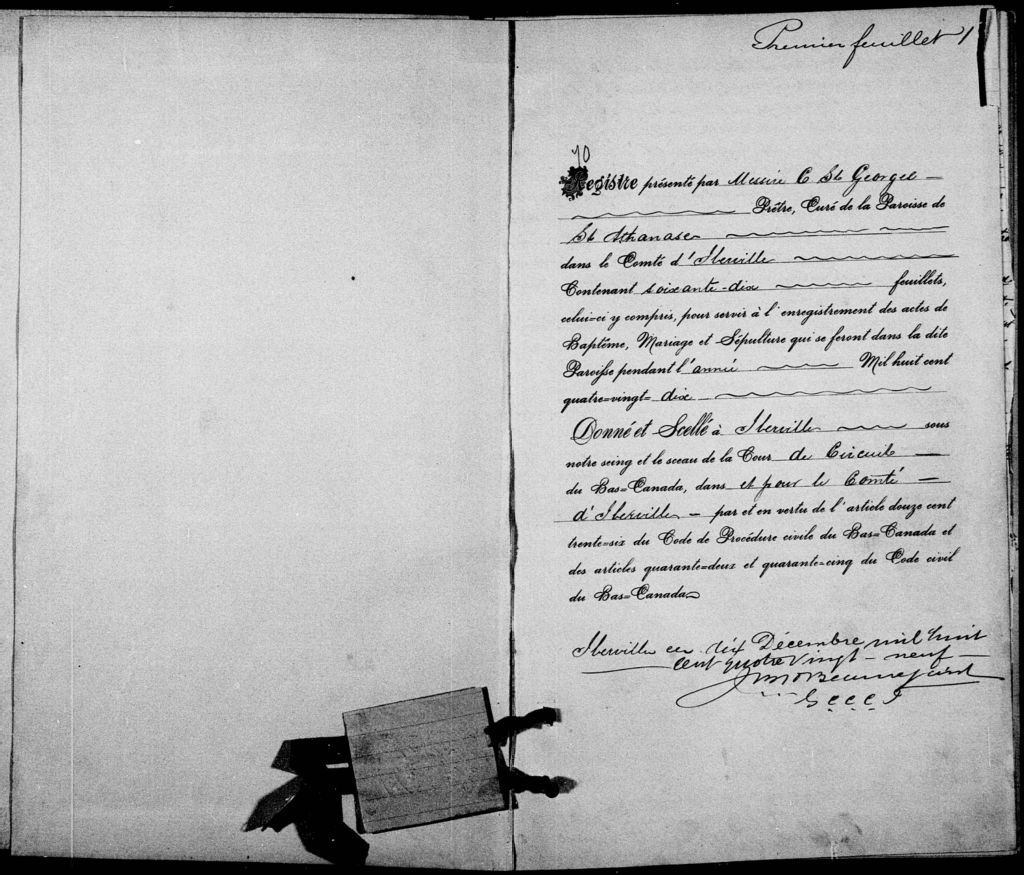 Premier feuillet 1
70
Registre présenté par Messire C St Georges
Prêtre, Curé de la Paroisse de
St Athanase
dans le Comté d'Iberville
Contenant soixante-dix feuillets,
celui=ci y compris, pour servir à l'enregistrement des actes de
Baptême, Mariage et Sépulture qui se feront dans la dite
Paroisse pendant l'année Mil huit cent
quatre=vingt= dix
Donné et Scellé à Iberville sous
notre seing et le sceau de la Cour de Circuit
du Bas=Canada, dans et pour le Comté
d'Iberville par et en vertu de l'article douze cent
trente=six du Code de Procédure civile du Bas=Canada et
des articles quarante=deux et quarante=cinq du Code civil
du Bas=Canada
Iberville ce dix Décembre mil huit
cent quatre vingt-neuf
G C C C I